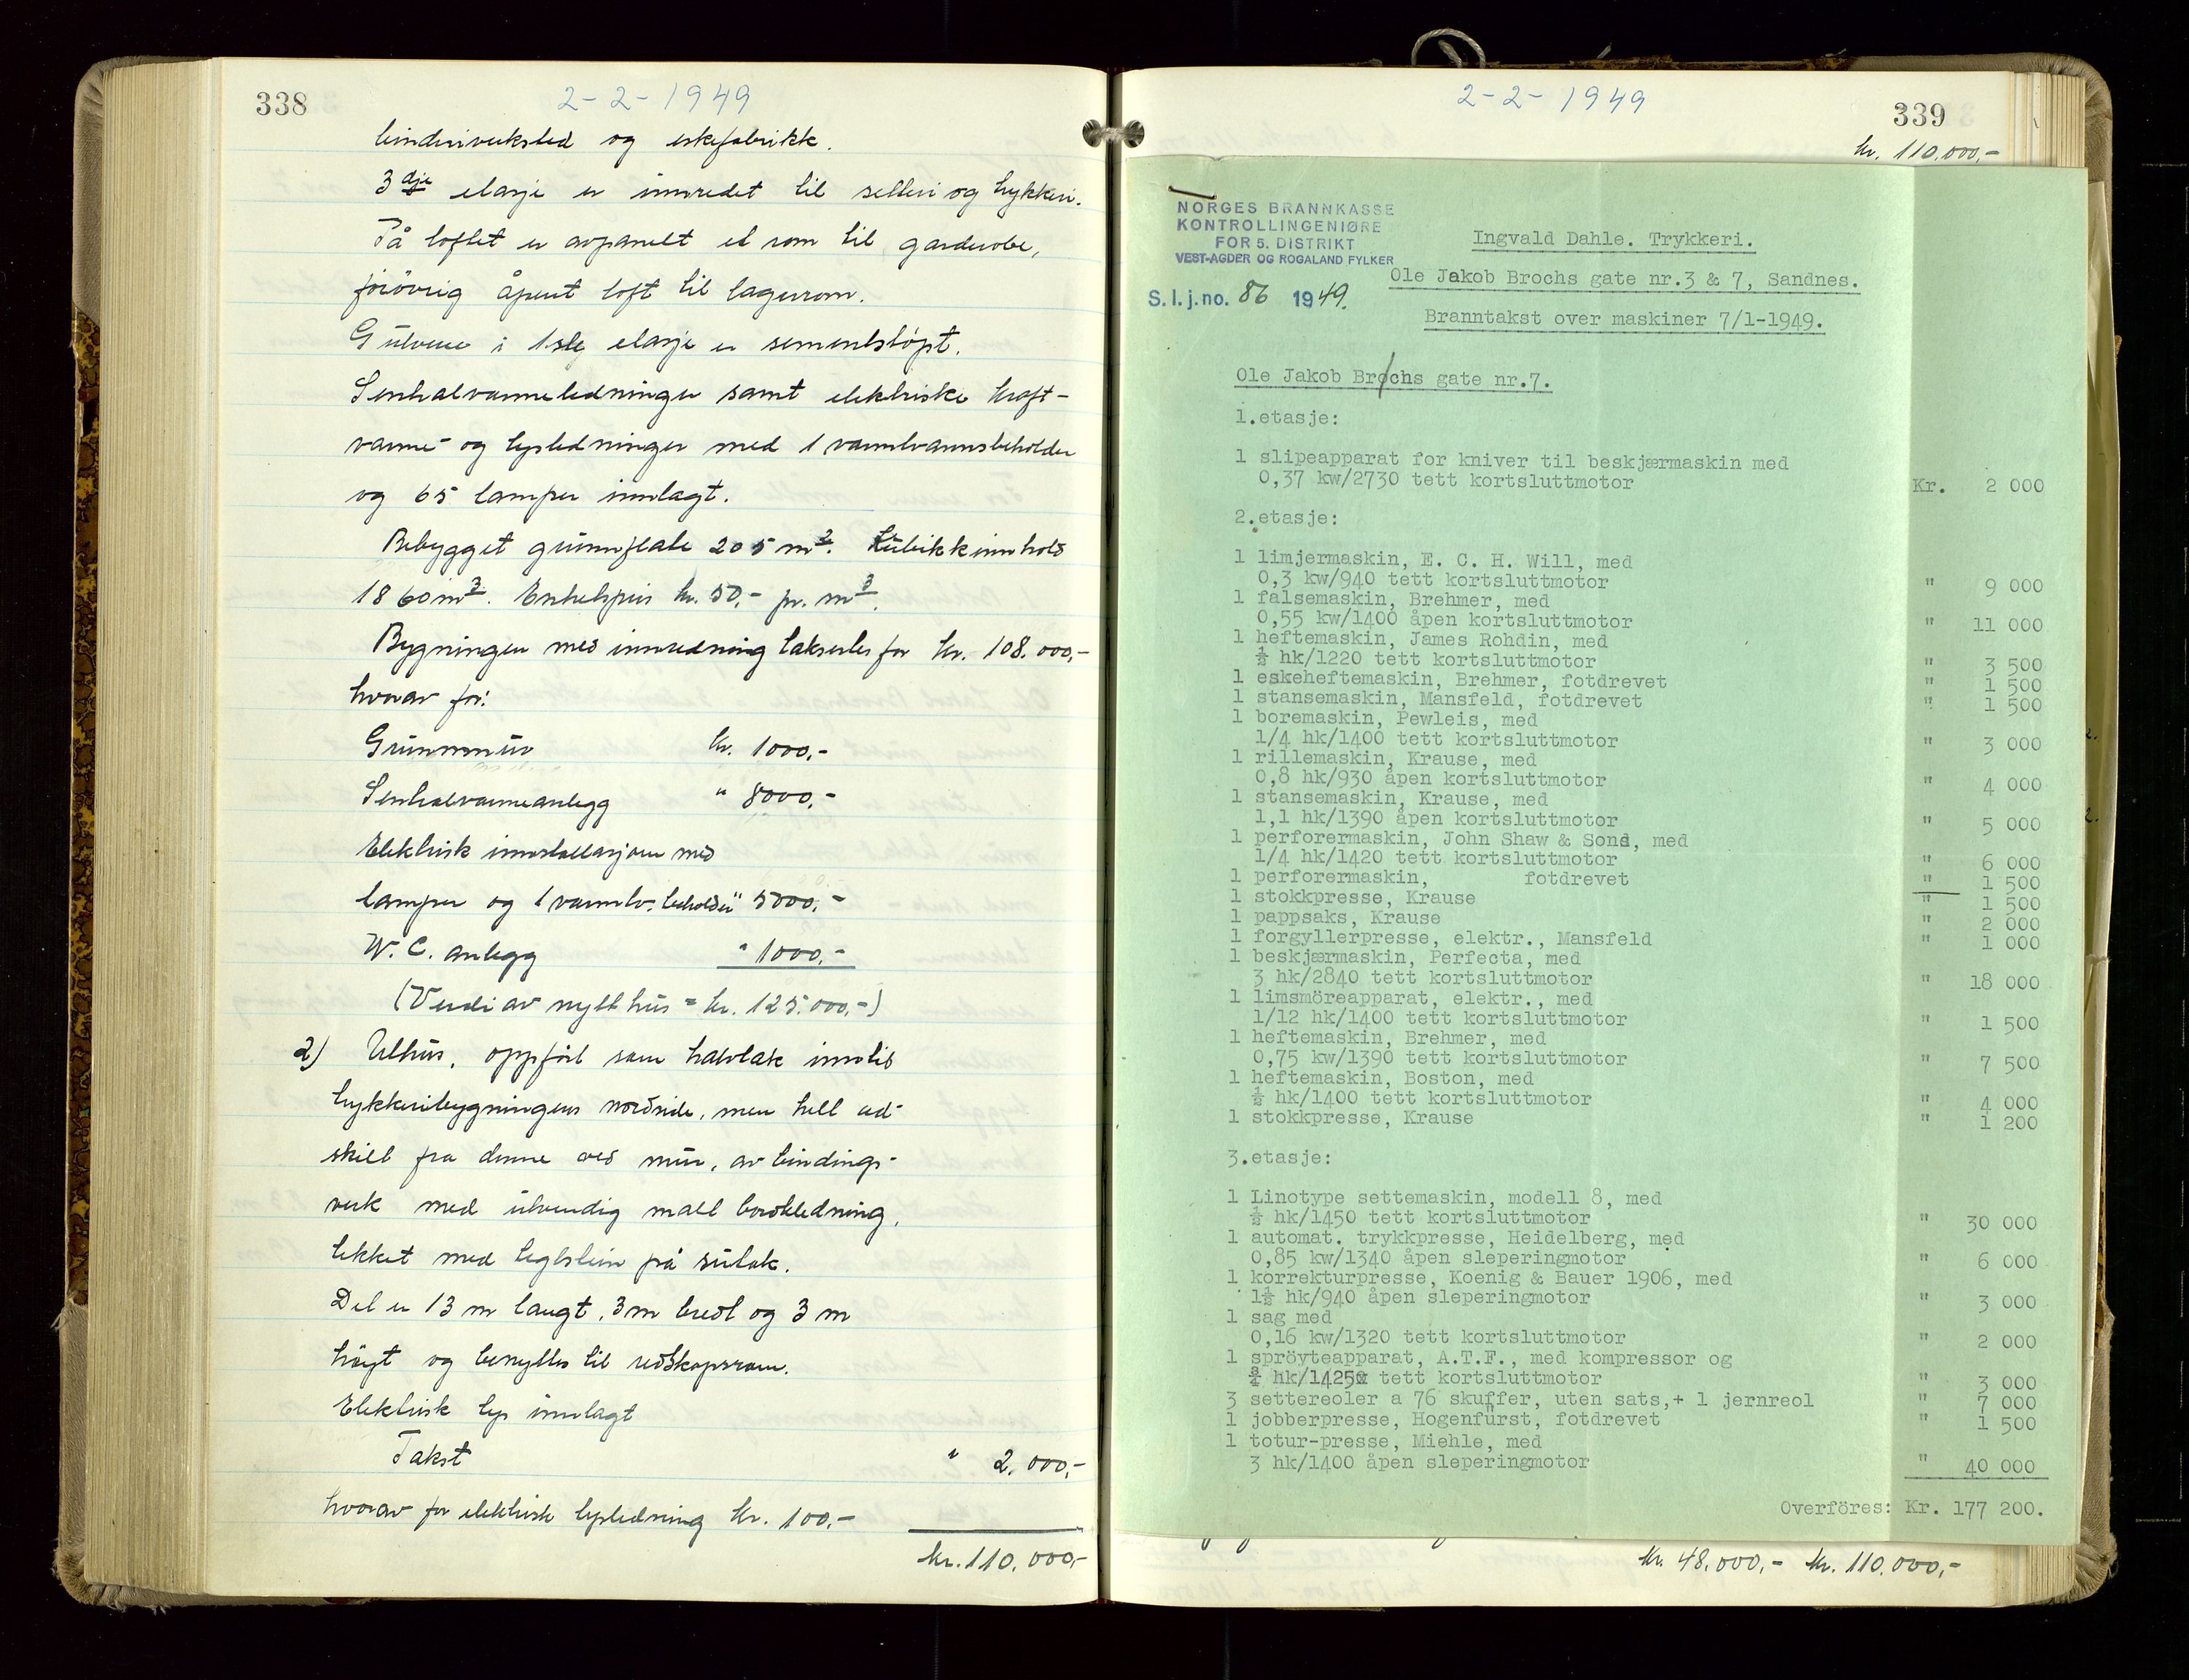 338
2-2-1949
binderiverksted og eskefabrikk.
3dje etasje er innredet til setteri og trykkeri.
På loftet er avpanelt et rom til garderobe,
forövrig åpent loft til lagerrom.
Gulvene i 1ste etasje er sementstöpt.
Sentralvarmeledninger samt elektriske kraft-
varme- og lysledninger med 1 varmtvannsbeholder
og 65 lamper innlagt.
Bebygget grunnflate 205 m2. Kubikkinnhold
1860 m3. Enhetspris kr. 50,- pr. m3.
Bygningen med innredning takseres for kr. 108.000,-
hvorav for:
Grunnmur kr. 1000,-
Sentralvarmeanlegg " 8000,-
Elektrisk innstallasjon med
lamper og 1 varmtv. beholder " 5000,-
W.C. anlegg " 1000,-
(Verdi av nytt hus = kr. 125.000,-)
2) Uthus, oppfört som halvtak inntil
trykkeribygningens nordside, men helt ad-
skilt fra denne ved mur, av bindings-
verk med utvendig malt bordkledning,
tekket med teglstein på sutak.
Det er 13 m langt, 3 m bredt og 3 m
höyt og benyttes til redskapsrom.
Elektrisk lys innlagt
Takst " 2.000,-
hvorav for elektrisk lysledning kr. 100,-
kr. 110.000,-
2-2-1949
339
kr. 110.000,-
NORGES BRANNKASSE
KONTROLLINGENIØRE
FOR 5. DISTRIKT
VEST-AGDER OG ROGALAND FYLKER
S.l.j.no. 86 1949.
Ingvald Dahle. Trykkeri.
Ole Jakob Brochs gate nr.3 & 7, Sandnes.
Branntakst over maskiner 7/1-1949.
Ole Jakob Brochs gate nr.7.
1.etasje:
1 slipeapparat for kniver til beskjærmaskin med
0,37 kw/2730 tett kortsluttmotor Kr. 2 000
2.etasje:
1 limjermaskin, E. C. H. Will, med
0,3 kw/940 tett kortsluttmotor " 9 000
1 falsemaskin, Brehmer, med
0,55 kw/1400 åpen kortsluttmotor " 11 000
1 heftemaskin, James Rohdin, med
½ hk/1220 tett kortsluttmotor " 3 500
1 eskeheftemaskin, Brehmer, fotdrevet " 1 500
1 stansemaskin, Mansfeld, fotdrevet " 1 500
1 boremaskin, Pewleis, med
1/4 hk/1400 tett kortsluttmotor " 3 000
1 rillemaskin, Krause, med
0,8 hk/930 åpen kortsluttmotor " 4 000
1 stansemaskin, Krause, med
1,1 hk/1390 åpen kortsluttmotor " 5 000
1 perforermaskin, John Shaw & Sons, med
1/4 hk/1420 tett kortsluttmotor " 6 000
1 perforermaskin, fotdrevet " 1 500
1 stokkpresse, Krause " 1 500
1 pappsaks, Krause " 2 000
1 forgyllerpresse, elektr., Mansfeld " 1 000
1 beskjærmaskin, Perfecta, med
3 hk/2840 tett kortsluttmotor " 18 000
1 limsmöreapparat, elektr., med
1/12 hk/1400 tett kortsluttmotor " 1 500
1 heftemaskin, Brehmer, med
0,75 kw/1390 tett kortsluttmotor " 7 500
1 heftemaskin, Boston, med
½ hk/1400 tett kortsluttmotor " 4 000
1 stokkpresse, Krause " 1 200
3.etasje:
1 Linotype settemaskin, modell 8, med
½ hk/1450 tett kortsluttmotor " 30 000
1 automat. trykkpresse, Heidelberg, med
0,85 kw/1340 åpen sleperingmotor " 6 000
1 korrekturpresse, Koenig & Bauer 1906, med
1½ hk/940 åpen sleperingmotor " 3 000
1 sag med
0,16 kw/1320 tett kortsluttmotor " 2 000
1 spröyteapparat, A.T.F., med kompressor og
¾ hk/1425 tett kortsluttmotor " 3 000
3 settereoler a 76 skuffer, uten sats,+ 1 jernreol " 7 000
1 jobberpresse, Hogenfürst, fotdrevet " 1 500
1 totur-presse, Miehle, med
3 hk/1400 åpen sleperingmotor " 40 000
Overföres: Kr. 177 200.
kr. 48.000,- kr. 110.000,-